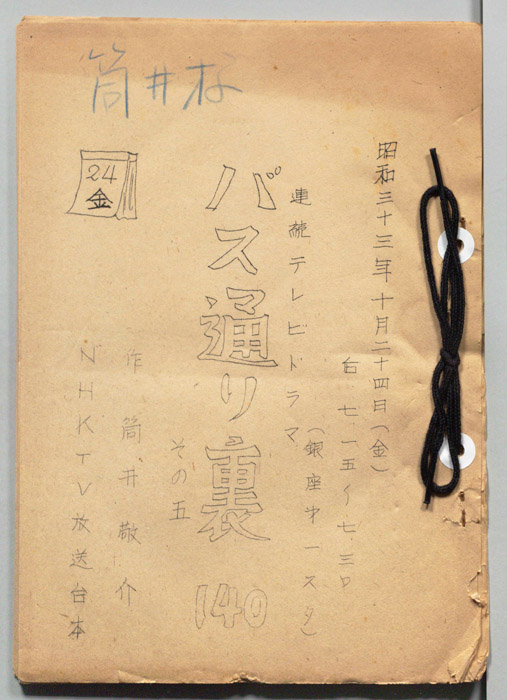 筒井様
昭和三十三年十月二十四日(金)
七・一五〜七・三〇
(銀座才一スタ)
連続テレビドラマ
バス通り裏 140
その五
24
金
作 筒井敬介
NHKTV放送台本